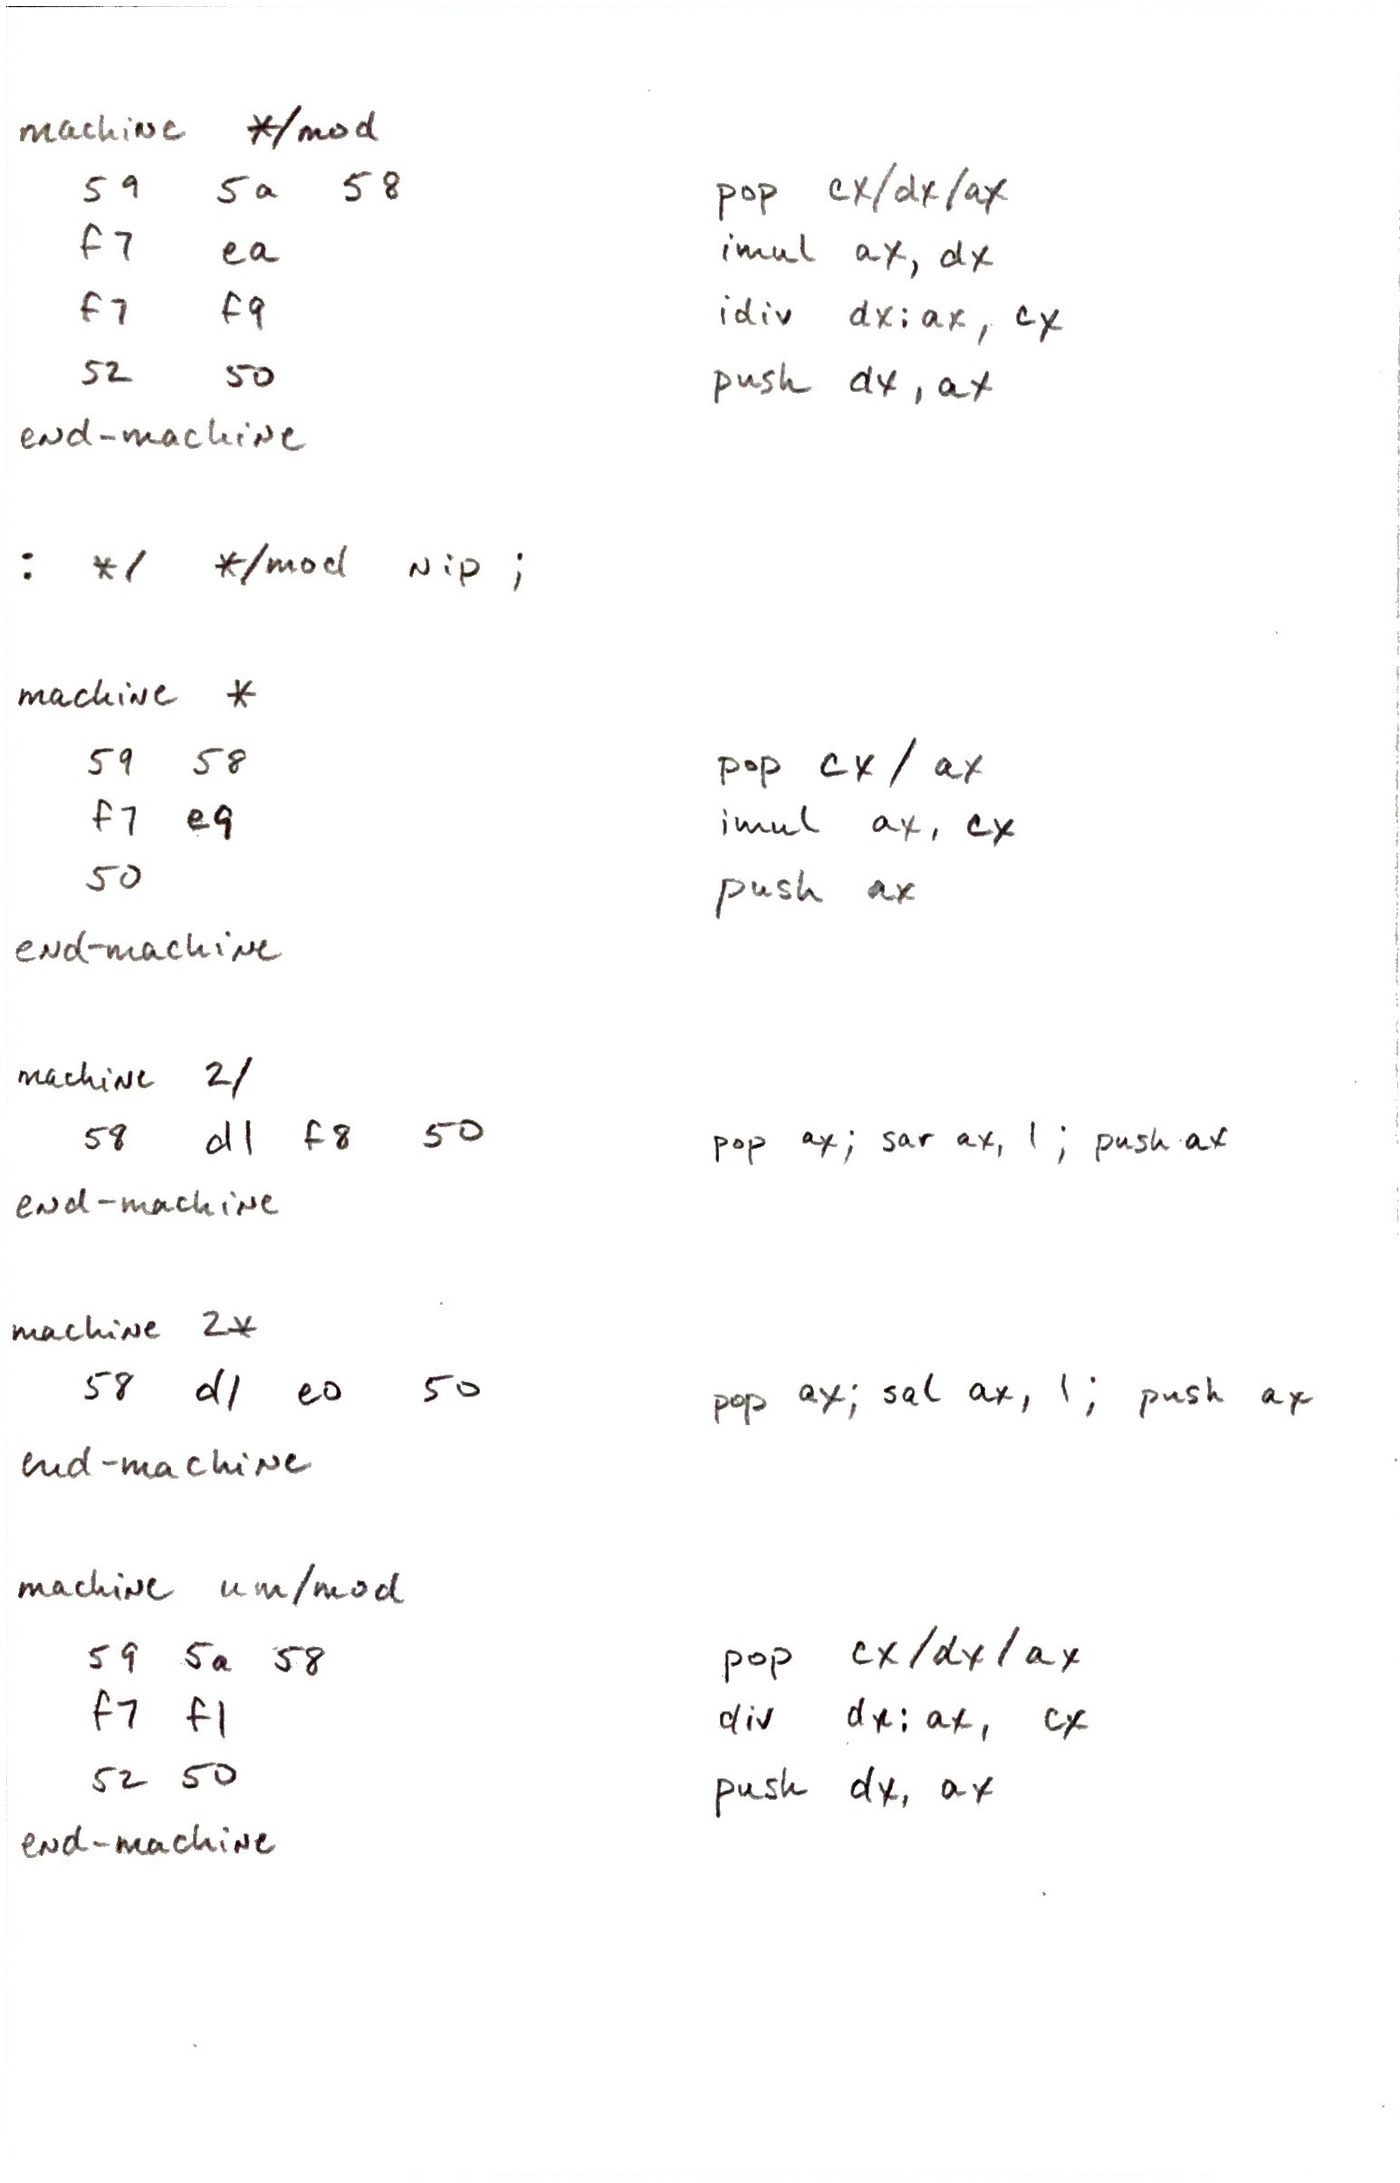 machine */mod
59 5a 58 pop cx/dx/ax
f7 ea imul ax, dx
f7 f9 idiv dx:ax, cx
52 50 push dx, ax
end-machine
: */ */mod nip ;
machine *
59 58 pop cx / ax
f7 e9 imul ax, cx
50 push ax
end-machine
machine 2/
58 d1 f8 50 pop ax; sar ax, 1; push ax
end-machine
machine 2*
58 d1 e0 50 pop ax; sal ax, 1; push ax
end-machine
machine um/mod
59 5a 58 pop cx/dx/ax
f7 f1 div dx:ax, cx
52 50 push dx, ax
end-machine